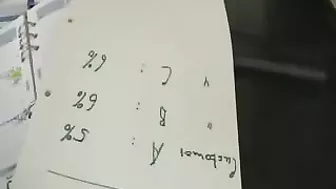 Customer A : 5%
B : 6%
C : 6%